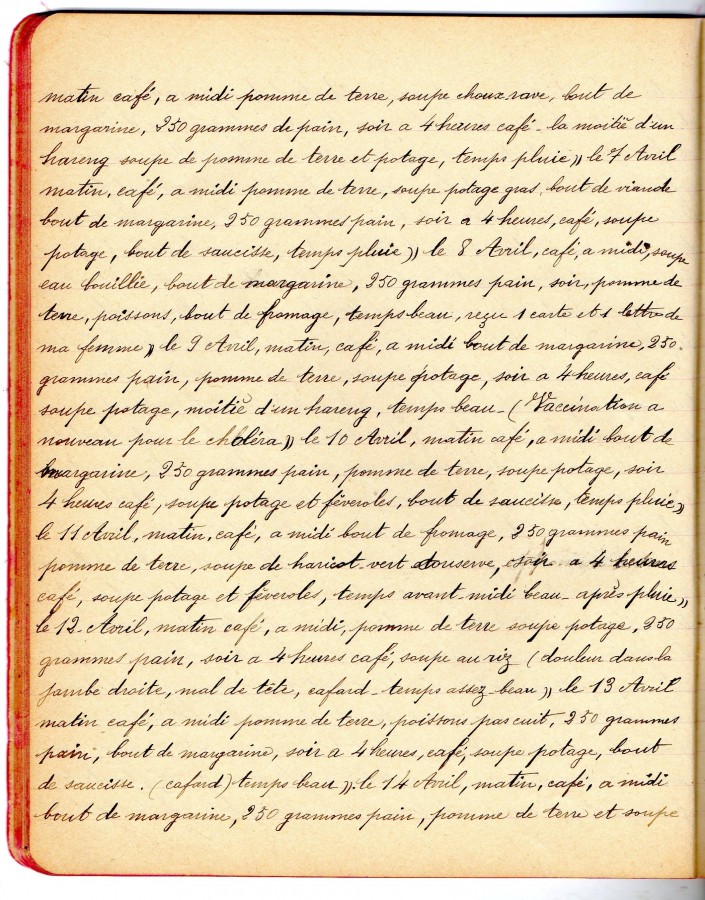 matin café, a midi pomme de terre, soupe choux-rave, bout de
margarine, 250 grammes de pain, soir a 4 heures café - la moitié d'un
hareng soupe de pomme de terre et potage, temps pluie)) le 7 Avril
matin, café, a midi pomme de terre, soupe potage gras, bout de viande
bout de margarine, 250 grammes pain, soir a 4 heures, café, soupe
potage, bout de saucisse, temps pluie)) le 8 Avril, café, a midi, soupe
eau bouillie, bout de margarine, 250 grammes pain, soir, pomme de
terre, poissons, bout de fromage, temps beau, reçu 1 carte et 1 lettre de
ma femme)) le 9 Avril, matin, café, a midi bout de margarine, 250.
grammes pain, pomme de terre, soupe potage, soir a 4 heures, café
soupe potage, moitié d'un hareng, temps beau - (Vaccination a
nouveau pour le choléra)) le 10 Avril, matin café, a midi bout de
margarine, 250 grammes pain, pomme de terre, soupe potage, soir
4 heures café, soupe potage et féveroles, bout de saucisse, temps pluie))
le 11 Avril, matin, café, a midi bout de fromage, 250 grammes pain
pomme de terre, soupe de haricot-vert, soir a 4 heures
café, soupe potage et féveroles, temps avant midi beau - après pluie))
le 12 Avril, matin café, a midi, pomme de terre soupe potage, 250
grammes pain, soir a 4 heures café, soupe au riz (douleur dans la
jambe droite, mal de tête, cafard - temps assez-beau)) le 13 Avril
matin café, a midi pomme de terre, poissons pas cuit, 250 grammes
pain, bout de margarine, soir a 4 heures, café, soupe potage, bout
de saucisse. (cafard) temps beau)). le 14 Avril, matin, café, a midi
bout de margarine, 250 grammes pain, pomme de terre et soupe